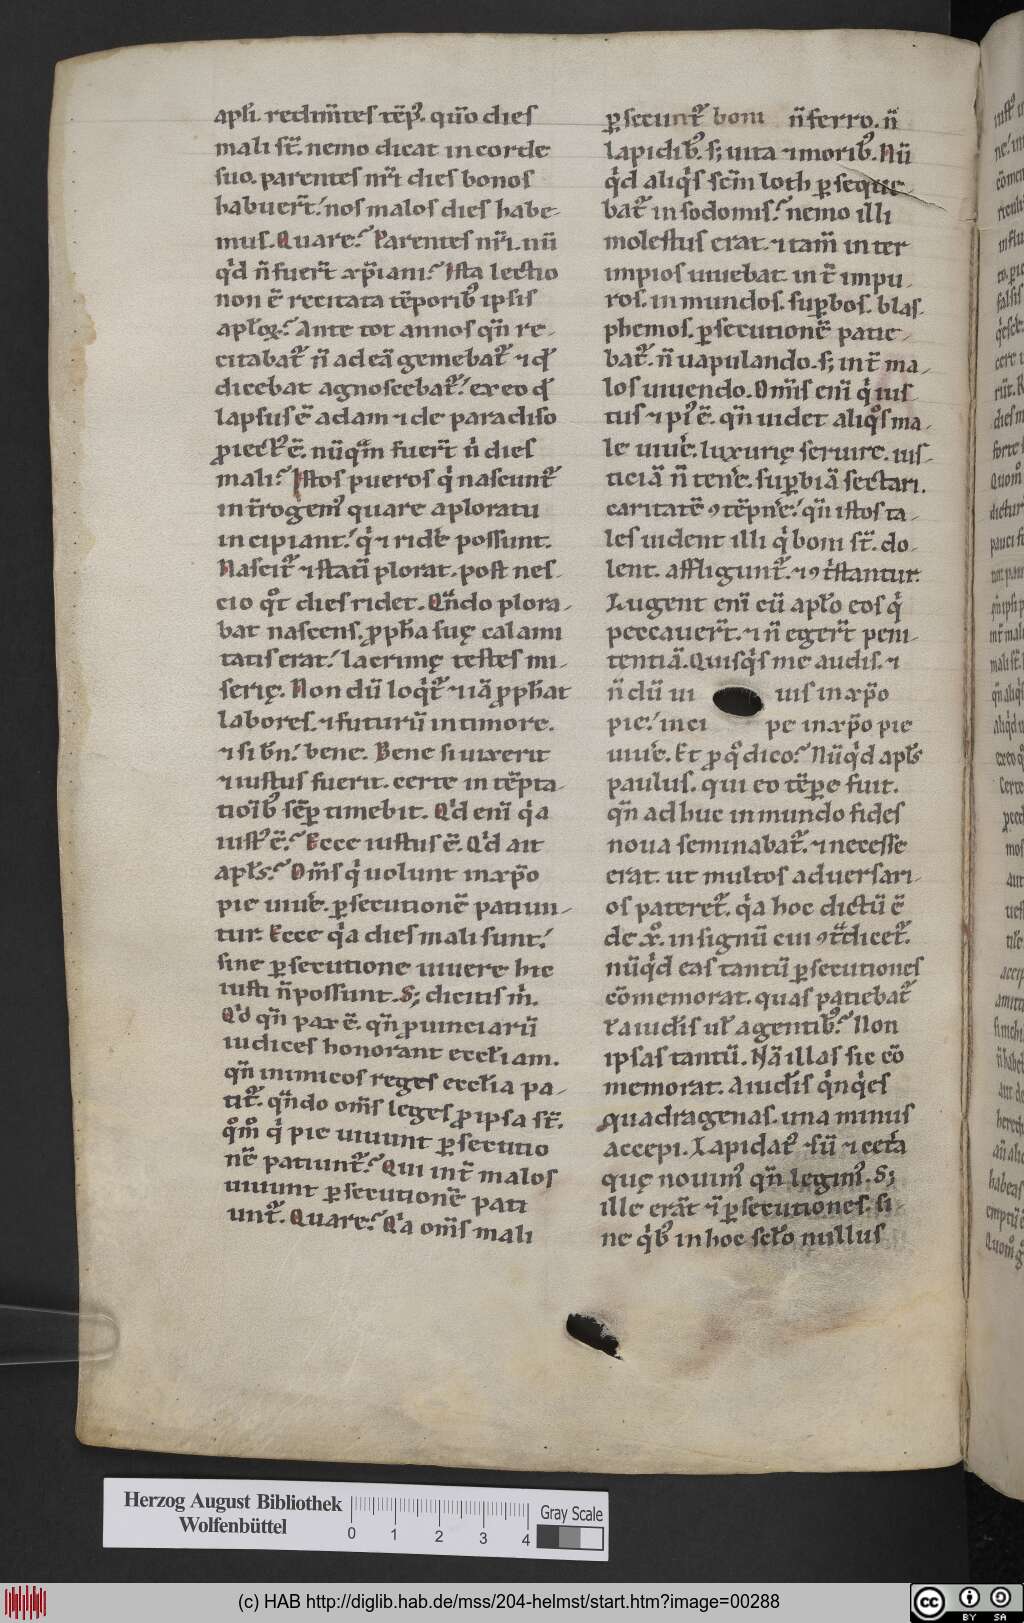 apłi. redim̄tes tēpꝰ. qm̄o dies
mali st̄. nemo dicat in corde
suo. parentes nr̄i dies bonos
habuer̄t. nos malos dies habe-
mus. Quare? Parentes nr̄i. nū
qͥd n̄ fuer̄t xp̄iani? Ista lectio
non ē recitata tēporibꝰ ipsis
apłoꝝ? Ante tot annos qn̄ re-
citabat᷑ n̄ ad eā gemebat᷑ ⁊ qđ
dicebat agnoscebat᷑. ex eo qđ
lapsus ē adam ⁊ de paradiso
ꝓiectꝰ ē. nūqͣm fuer̄t n̄ dies
mali? Istos pueros qͥ nascunt᷑
int̄rogemꝰ quare a ploratu
incipiant. qͥ ⁊ ridere possunt.
Nascit᷑ ⁊ statī plorat. post nes-
cio qͦt dies ridet. Qn̄do plora-
bat nascens. ꝓpħa suę calami
tatis erat. lacrimę testes mi-
serię. Non dū loqͥt᷑ ⁊ iā ꝓpħat
labores. ⁊ futurū in timore.
⁊ si bn̄. bene. Bene si uixerit
⁊ iustus fuerit. certe in tēpta-
tioībꝰ sēꝑ timebit. Qͥd enī qͥa
iustꝰ ē? Ecce iustus ē. Qͥd ait
apłs? Om̄s qͥ uolunt in xp̄o
pie uiuͤe. ꝑsecutionē patiun-
tur. Ecce qͥa dies mali sunt.
sine ꝑsecutione uiuere hic
iusti n̄ possunt. S; dicitis m̄.
Qͥd qn̄ pax ē. qn̄ ꝓuinciarū
iudices honorant ecclīam.
qn̄ inimicos reges ecclīa pa-
tit᷑. qn̄do om̄s leges ꝓ ipsa st̄.
qͦmͦ qͥ pie uiuunt ꝑsecutio
nē patiunt᷑? Qui int̄ malos
uiuunt ꝑsecutionē pati
unt᷑. Quare? Qͥa om̄s mali
ꝑsecunt᷑ boni n̄ ferro. n̄
lapidibꝰ. s; uita ⁊ moribꝰ. Nū
qͥd aliqͥs scm̄ loth ꝑseque-
bat᷑ in sodomis? nemo illi
molestus erat. ⁊ tam̄ inter
impios uiuebat. int̄ impu-
ros. inmundos. suꝑbos. blas-
phemos. ꝑsecutionē patie-
bat᷑. n̄ uapulando. s; int̄ ma-
los uiuendo. Om̄is enī qͥ ius
tus ⁊ piꝰ ē. qn̄ uidet aliqͦs ma-
le uiuͤe. luxurię seruire. ius-
ticiā n̄ tenͤe. suꝑbiā sectari.
caritatē ꝯtēpnͤe. qn̄ istos ta-
les uident illi qͥ boni st̄. do-
lent. affligunt᷑. ⁊ ꝯtͥstantur.
Lugent enī cū apło eos qͥ
peccauer̄t. ⁊ n̄ eger̄t peni-
tentiā. Quisqͥs me audis. ⁊
n̄ dū ui uis in xp̄o
pie. inci pe in xp̄o pie
uiuͤe. Et ꝓ qͦ dico? Nūqͥd apłs
paulus. qui eo tēpe fuit.
qn̄ adhuc in mundo fides
noua seminabat᷑. ⁊ necesse
erat. ut multos aduersari-
os pateret᷑. qͥa hoc dictū ē
de xͦ. in signū cui ꝯtͣdicet᷑.
nūqͥd eas tantū ꝑsecutiones
cōmemorat. quas patiebat᷑
ł a iudīs uł a gentibꝰ? Non
ipsas tantū. Nā illas sic cō
memorat. A iudīs qͥnqͥes
quadragenas. una minus
accepi. Lapidatꝰ sū ⁊ cetͤa
quę nouimꝰ qn̄ legimꝰ. S;
ille erāt ⁊ ī ꝑsecutiones. si-
ne qͥbꝰ in hoc scło nullus
Herzog August Bibliothek
Wolfenbüttel
0 1 2 3 4
Gray Scale
(c) HAB http://diglib.hab.de/mss/204-helmst/start.htm?image=00288
cc BY SA